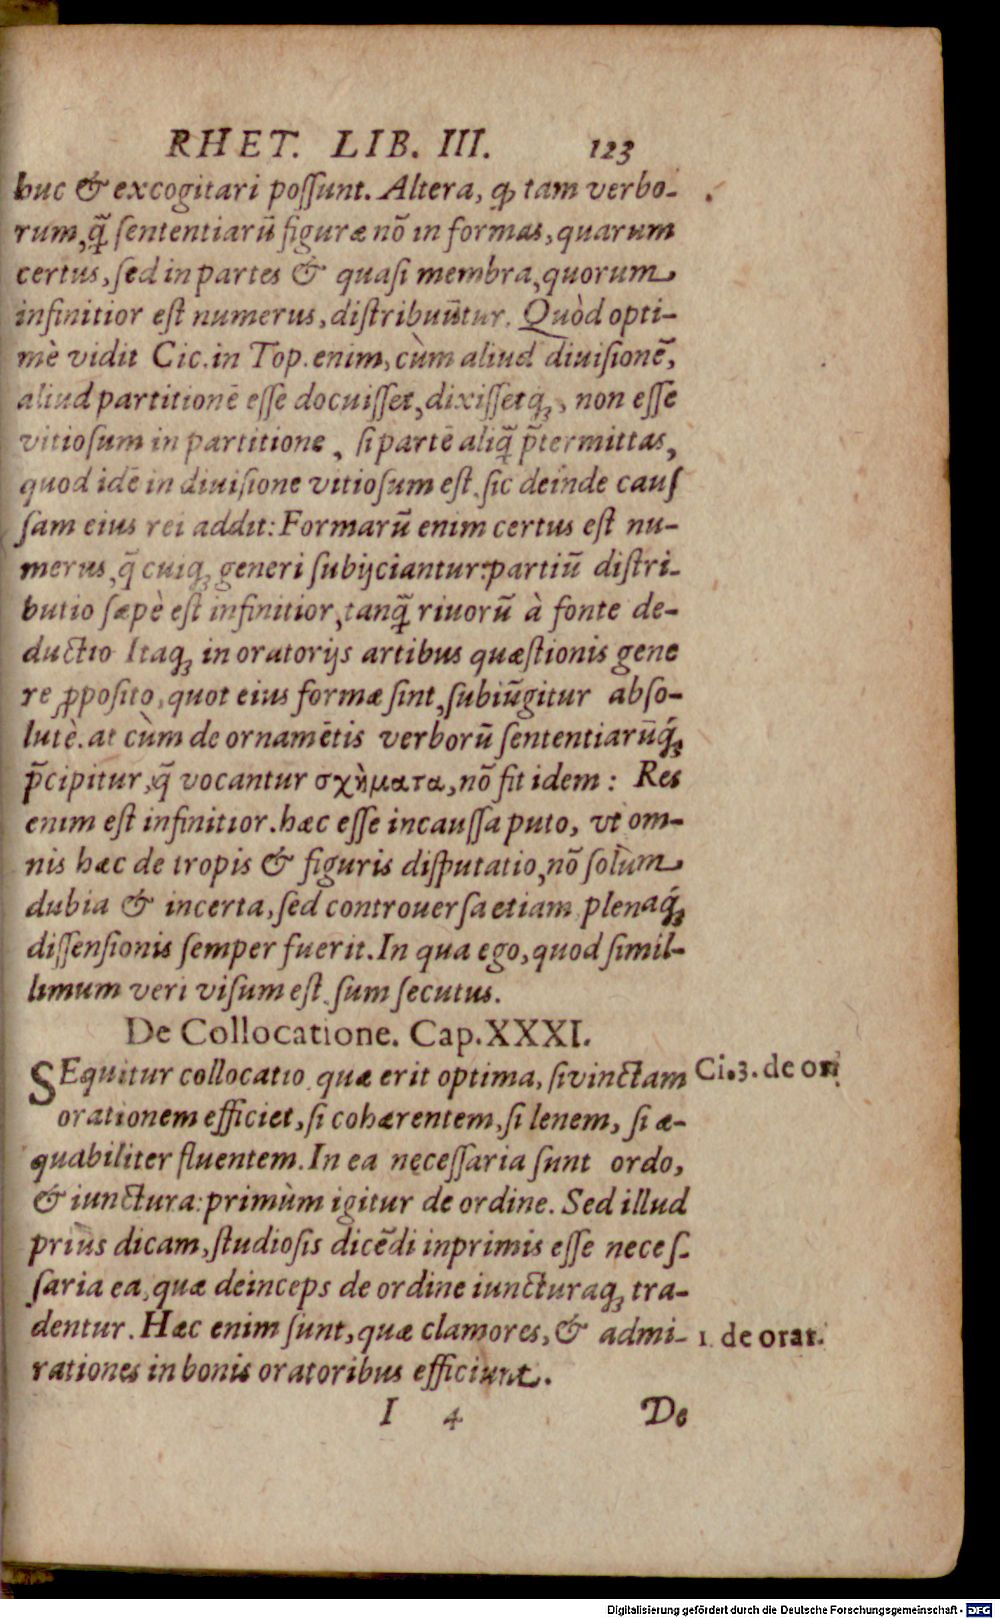 RHET. LIB. III. 123
huc & excogitari poſſunt. Altera, ꝙ tam verbo-
rum, q̃ ſententiarũ figuræ nõ in formas, quarum
certus, ſed in partes & quaſi membra, quorum
infinitior eſt numerus, diſtribuũtur. Quòd opti-
mè vidit Cic. in Top. enim, cùm aliud diuiſionẽ,
aliud partitionẽ eſſe docuiſſet, dixiſſetq́;, non eſſe
vitioſum in partitione, ſi partẽ aliq̃ p̃termittas,
quod idẽ in diuiſione vitioſum eſt. ſic deinde cauſ
ſam eius rei addit: Formarũ enim certus eſt nu-
merus, q̃ cuiq; generi ſubijciantur: partiũ diſtri-
butio ſæpè eſt infinitior, tanq̃ riuorũ à fonte de-
ductio Itaq; in oratorijs artibus quæſtionis gene
re ꝓpoſito, quot eius formæ ſint, ſubiũgitur abſo-
lutè. at cùm de ornamẽtis verborũ ſententiarũq́;
p̃cipitur, q̃ vocantur σχήματα, nõ fit idem: Res
enim eſt infinitior. hæc eſſe in cauſſa puto, vt om-
nis hæc de tropis & figuris diſputatio, nõ ſolùm
dubia & incerta, ſed controuerſa etiam plenaq́;
diſſenſionis ſemper fuerit. In qua ego, quod ſimil-
limum veri viſum eſt. ſum ſecutus.
De Collocatione. Cap. XXXI.
SEquitur collocatio quæ erit optima, ſi vinctam
orationem efficiet, ſi cohærentem, ſi lenem, ſi æ-
quabiliter fluentem. In ea neceſſaria ſunt ordo,
& iunctura: primùm igitur de ordine. Sed illud
priùs dicam, ſtudioſis dicẽdi inprimis eſſe neceſ-
ſaria ea, quæ deinceps de ordine iuncturaq; tra-
dentur. Hæc enim ſunt, quæ clamores, & admi-
rationes in bonis oratoribus efficiunt.
I 4 De
Ci. 3. de or.
1. de orat.
Digitalisierung gefördert durch die Deutsche Forschungsgemeinschaft - DFG